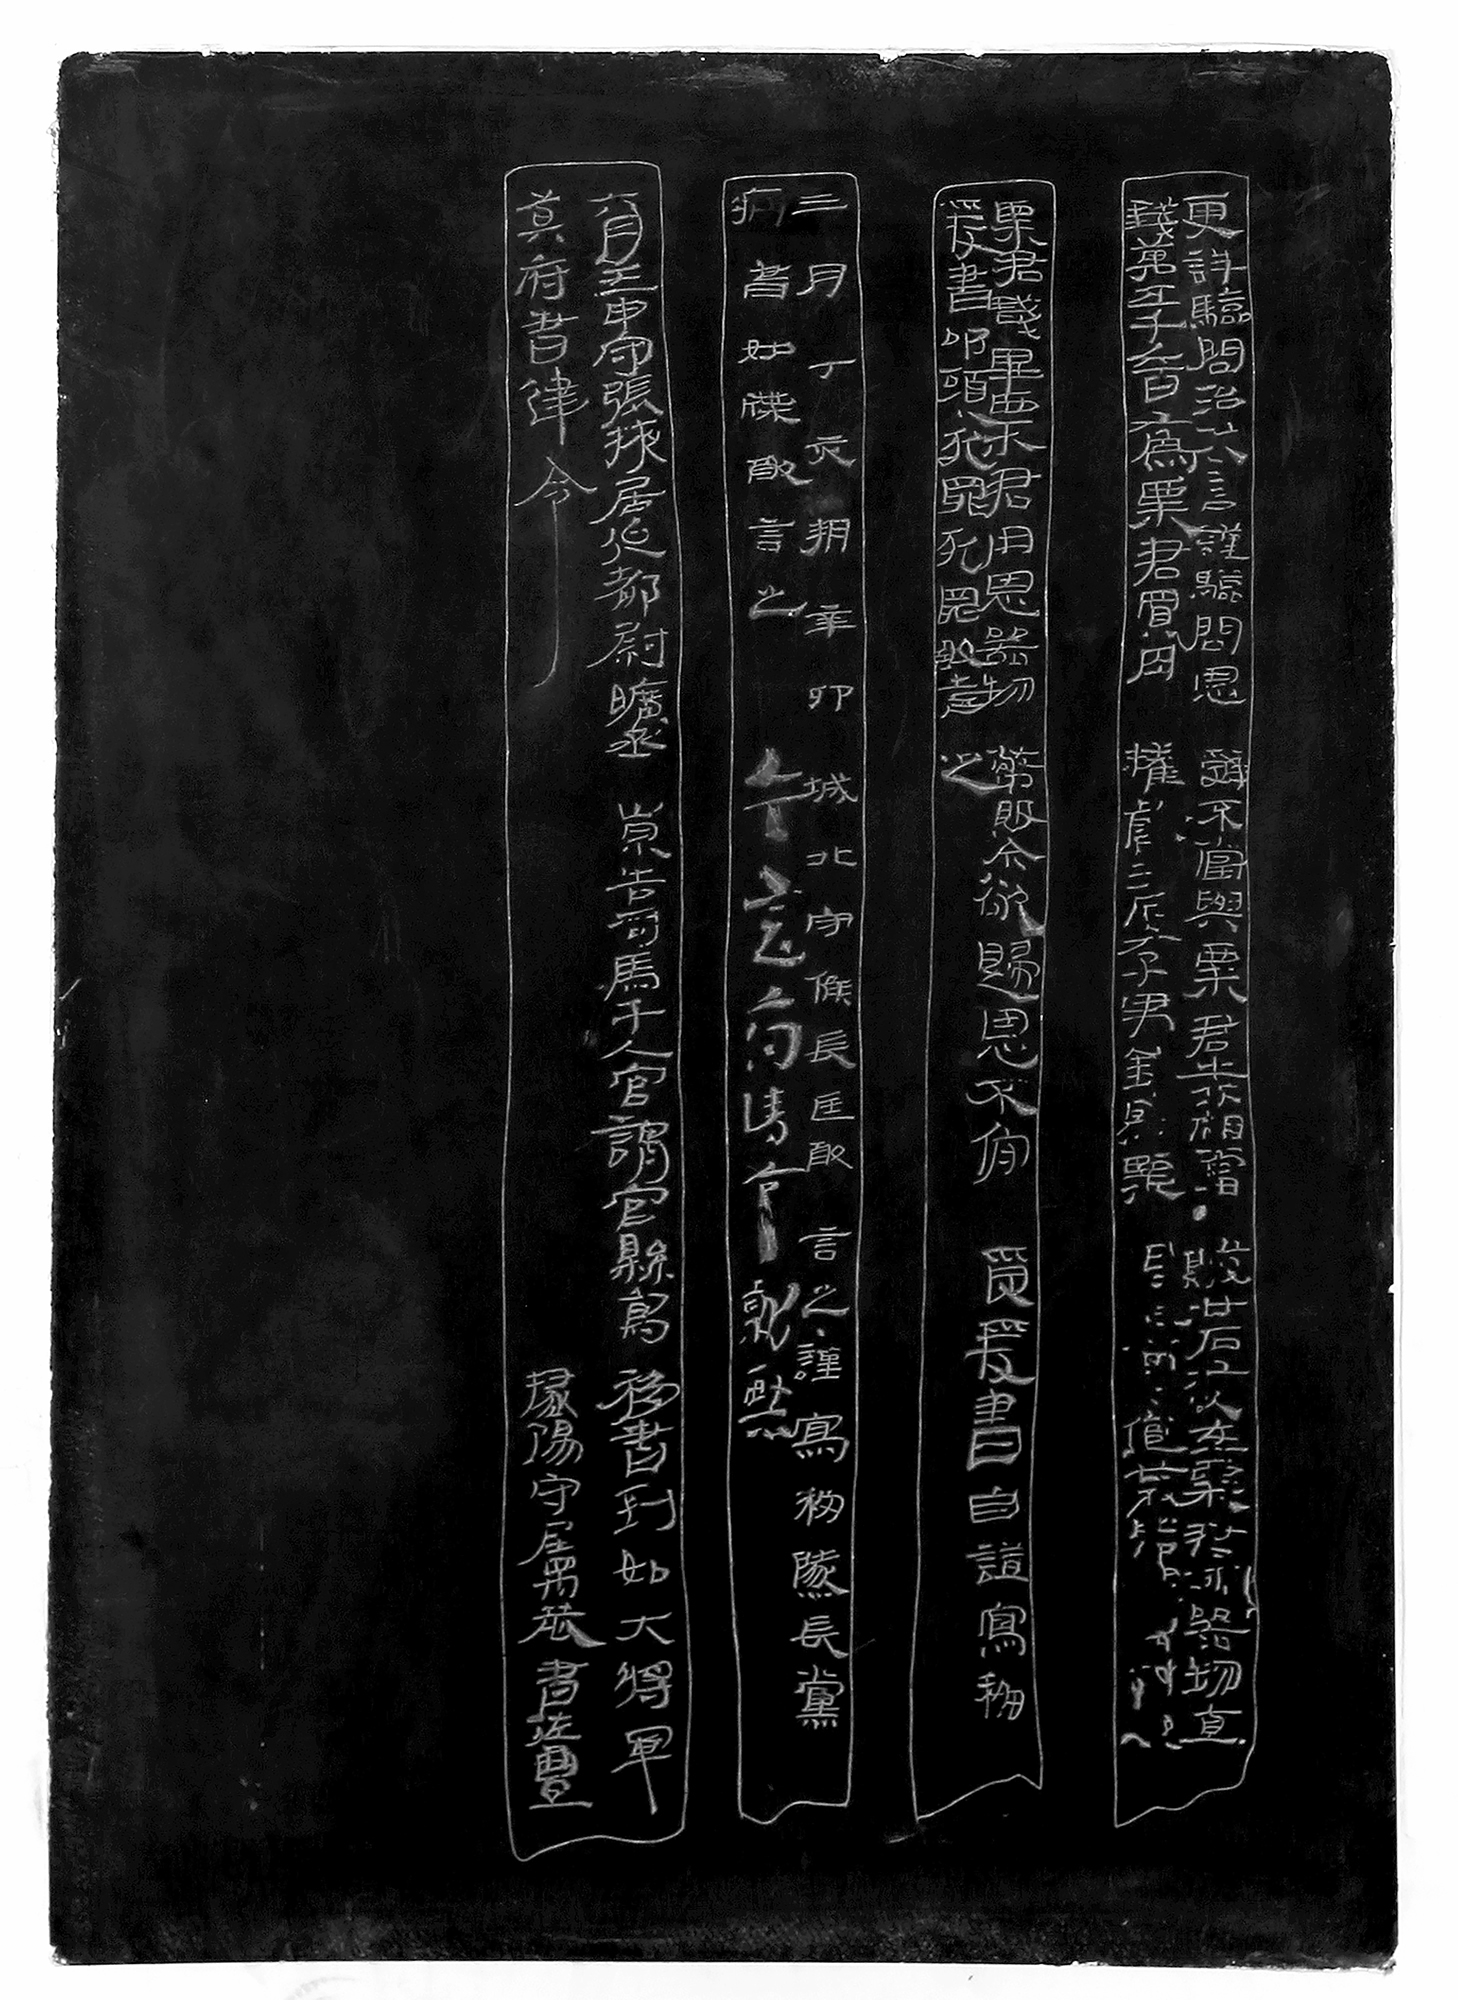 更詳驗問治決言謹驗問恩 辭不當與粟君牛不相當 穀廿石又以在粟君所器物直
錢萬五千六百為粟君買肉 糴穀三石又子男欽
粟君錢畢粟君用恩器物 幣敗今欲歸恩不肯 受爰書自證寫移
爰書叩頭死罪死罪敢言之
三月丁亥朔辛卯 城北守候長匡敢 言之謹寫移隧長黨
病書如牒敢言之 今言府請令就醫
八月壬申守張掖居延都尉曠丞 崇告司馬千人官謂官縣寫 移書到如大將軍
莫府書律令 掾陽守屬恭書佐豐